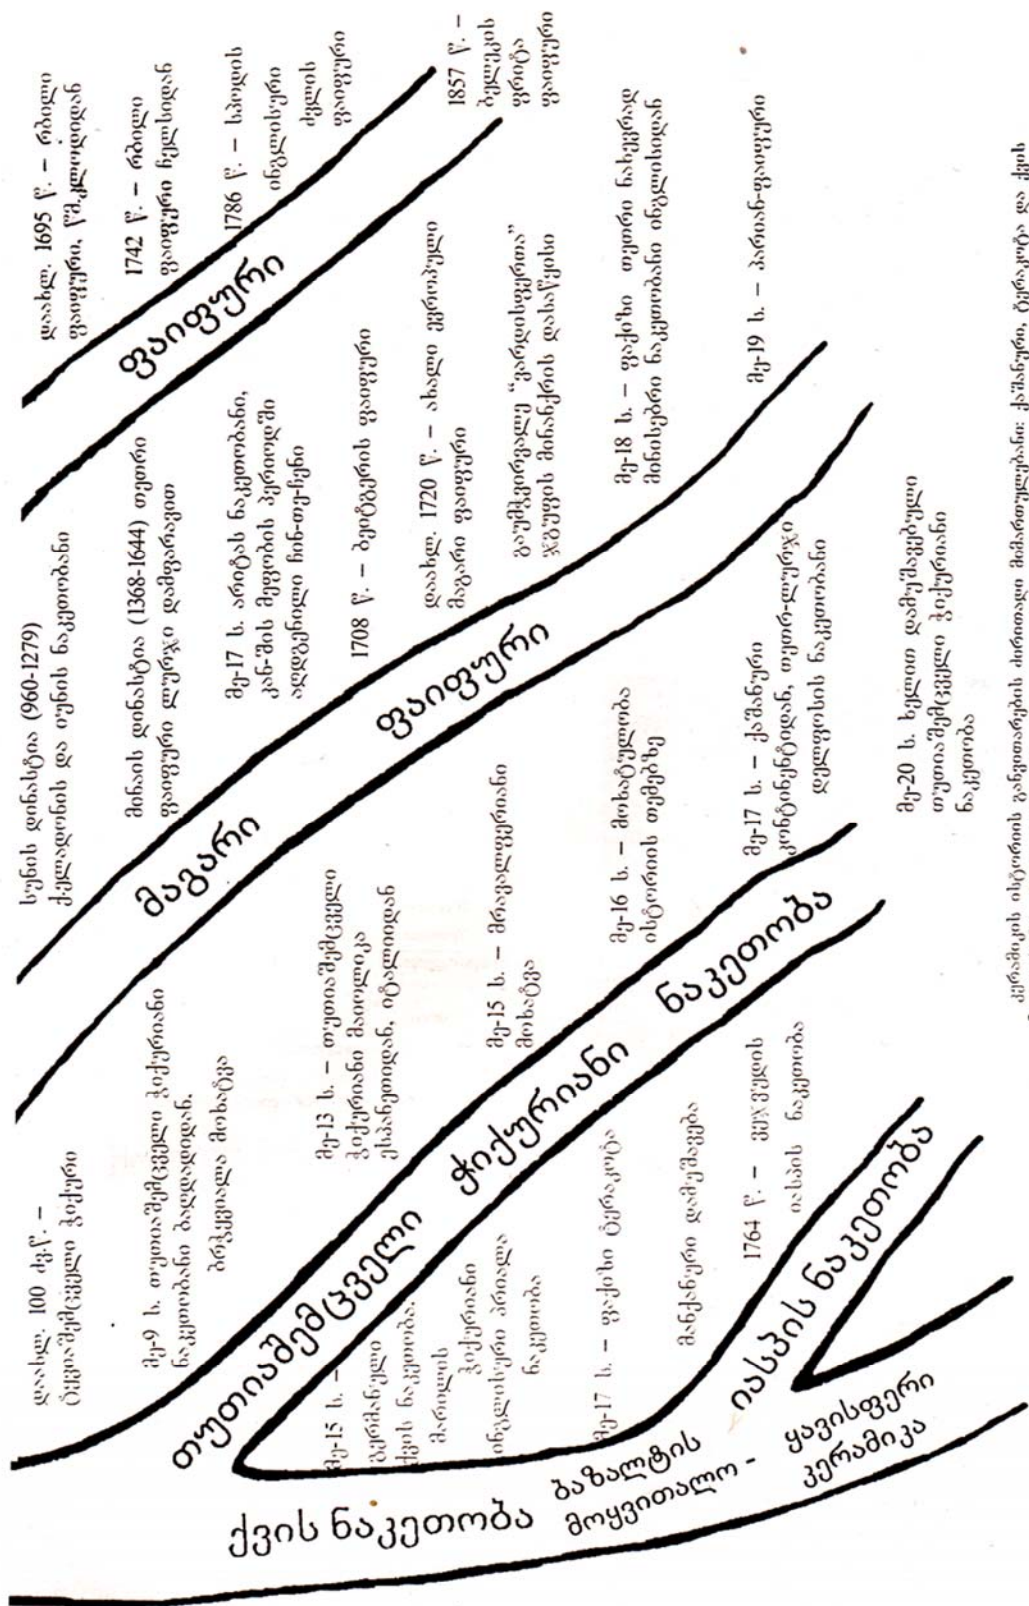 დაახლ. 1695 წ. – რბილი
ფაიფური, წმ.კლოდიდან
1742 წ. – რბილი
ფაიფური ჩელსიდან
1786 წ. – სპოდის
ინგლისური
ძვლის
ფაიფური
1857 წ. –
ბელეკის
ფრიტა
ფაიფური
ფაიფური
სუნის დინასტია (960-1279)
ქელადონის და იუნის ნაკეთობანი
მინაის დინასტია (1368-1644) თეთრი
ფაიფური ლურჯი დამფარავით
მე-17 ს. არიტას ნაკეთობანი,
კან-შის მეფობის პერიოდში
აღდგენილი ჩინ-თე-ჩენი
1708 წ. – ბეიტგერის ფაიფური
დაახლ. 1720 წ. – ახალი ევროპული
მაგარი ფაიფური
გაუმჭვირვალე “ვარდისფერთა”
ჯგუფის მინანქრის დასაწყისი
მე-18 ს. – ფაქიზი თეთრი ნახევრად
მინისებრი ნაკეთობანი ინგლისიდან
მე-19 ს. – პარიან-ფაიფური
მაგარი ფაიფური
დაახლ. 100 ძვ.წ. –
ტყვიაშემცველი ჭიქური
მე-9 ს. თუთიაშემცველი ჭიქურიანი
ნაკეთობანი ბაღდადიდან.
ბრჭყვიალა მოხატვა
მე-13 ს. – თუთიაშემცველი
ჭიქურიანი მაიოლიკა
ესპანეთიდან, იტალიიდან
მე-15 ს. – მრავალფერიანი
მოხატვა
მე-16 ს. – მოხატულობა
ისტორიის თემებზე
მე-17 ს. – ქაშანური
კონტინენტიდან, თეთრ-ლურჯი
დელფოსის ნაკეთობანი
მე-20 ს. ხელით დამუშავებული
თუთიაშემცველი ჭიქურიანი
ნაკეთობა
თუთიაშემცველი ჭიქურიანი ნაკეთობა
მე-15 ს. –
გერმანული
ქვის ნაკეთობა.
მარილის
ჭიქურიანი
ინგლისური პრიალა
ნაკეთობა
მე-17 ს. – ფაქიზი ტერაკოტა
მანქანური დამუშავება
1764 წ. – ვეჯვუდის
იასპის ნაკეთობა
იასპის ნაკეთობა
ქვის ნაკეთობა
ბაზალტის
მოყვითალო - ყავისფერი
კერამიკა
კერამიკის ისტორიის განვითარების ძირითადი მიმართულებანი: ქაშანური, ტერაკოტა და ქვის